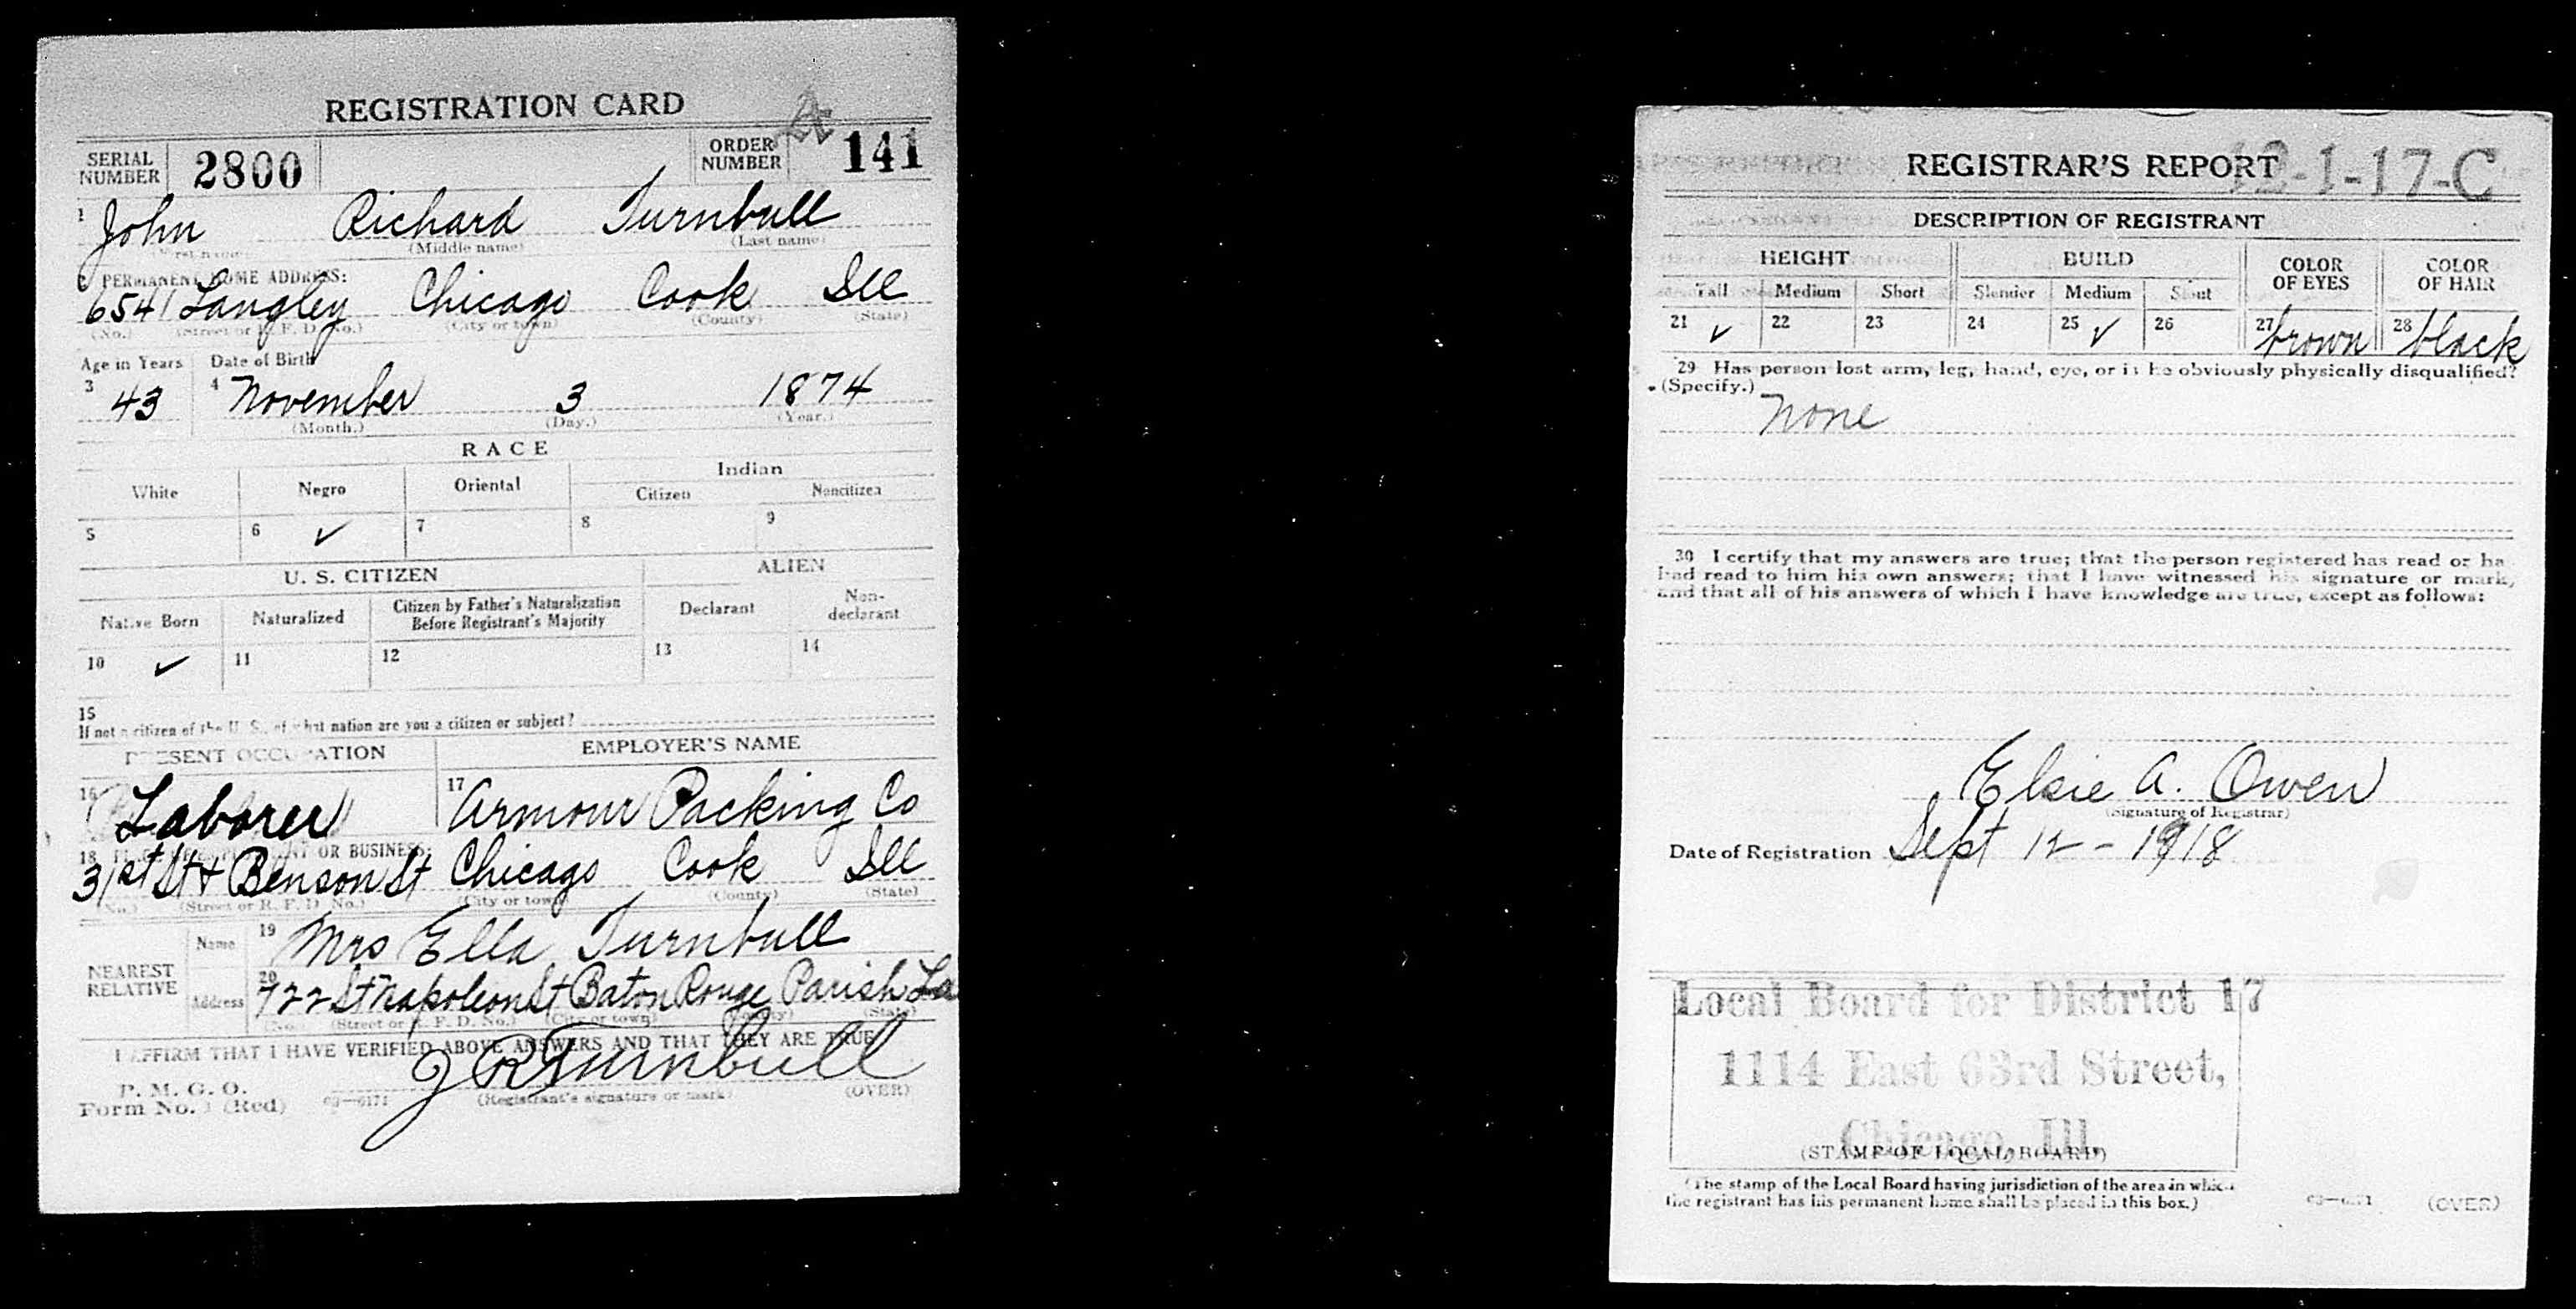 REGISTRATION CARD
SERIAL NUMBER 2800 ORDER NUMBER 141
1 John Richard Turnbull
(First name) (Middle name) (Last name)
2 PERMANENT HOME ADDRESS:
6541 Langley Chicago Cook Ill
(No.) (Street or R. F. D. No.) (City or town) (County) (State)
Age in Years Date of Birth
3 43 4 November 3 1874
(Month.) (Day.) (Year.)
RACE
White Negro Oriental Indian
Citizen Noncitizen
5 6 ✓ 7 8 9
U. S. CITIZEN ALIEN
Native Born Naturalized Citizen by Father's Naturalization Before Registrant's Majority Declarant Non-declarant
10 ✓ 11 12 13 14
15
If not a citizen of the U. S., of what nation are you a citizen or subject?
PRESENT OCCUPATION EMPLOYER'S NAME
16 Laborer 17 Armour Packing Co
18 PLACE OF EMPLOYMENT OR BUSINESS:
31st St & Benson St Chicago Cook Ill
(No.) (Street or R. F. D. No.) (City or town) (County) (State)
NEAREST RELATIVE Name 19 Mrs Ella Turnbull
Address 20 722 St Napoleon St Baton Rouge Parish La
(No.) (Street or R. F. D. No.) (City or town) (County) (State)
I AFFIRM THAT I HAVE VERIFIED ABOVE ANSWERS AND THAT THEY ARE TRUE
J R Turnbull
P. M. G. O.
Form No. 1 (Red) 03—6171 (Registrant's signature or mark) (OVER)
REGISTRAR'S REPORT 12-1-17-C
DESCRIPTION OF REGISTRANT
HEIGHT BUILD COLOR OF EYES COLOR OF HAIR
Tall Medium Short Slender Medium Stout
21 ✓ 22 23 24 25 ✓ 26 27 brown 28 black
29 Has person lost arm, leg, hand, eye, or is he obviously physically disqualified?
(Specify.)
none
30 I certify that my answers are true; that the person registered has read or has
had read to him his own answers; that I have witnessed his signature or mark,
and that all of his answers of which I have knowledge are true, except as follows:
Elsie A. Owen
(Signature of Registrar)
Date of Registration Sept 12 - 1918
Local Board for District 17
1114 East 63rd Street,
Chicago, Ill.
(STAMP OF LOCAL BOARD)
(The stamp of the Local Board having jurisdiction of the area in which
the registrant has his permanent home shall be placed in this box.)
03—6171 (OVER)